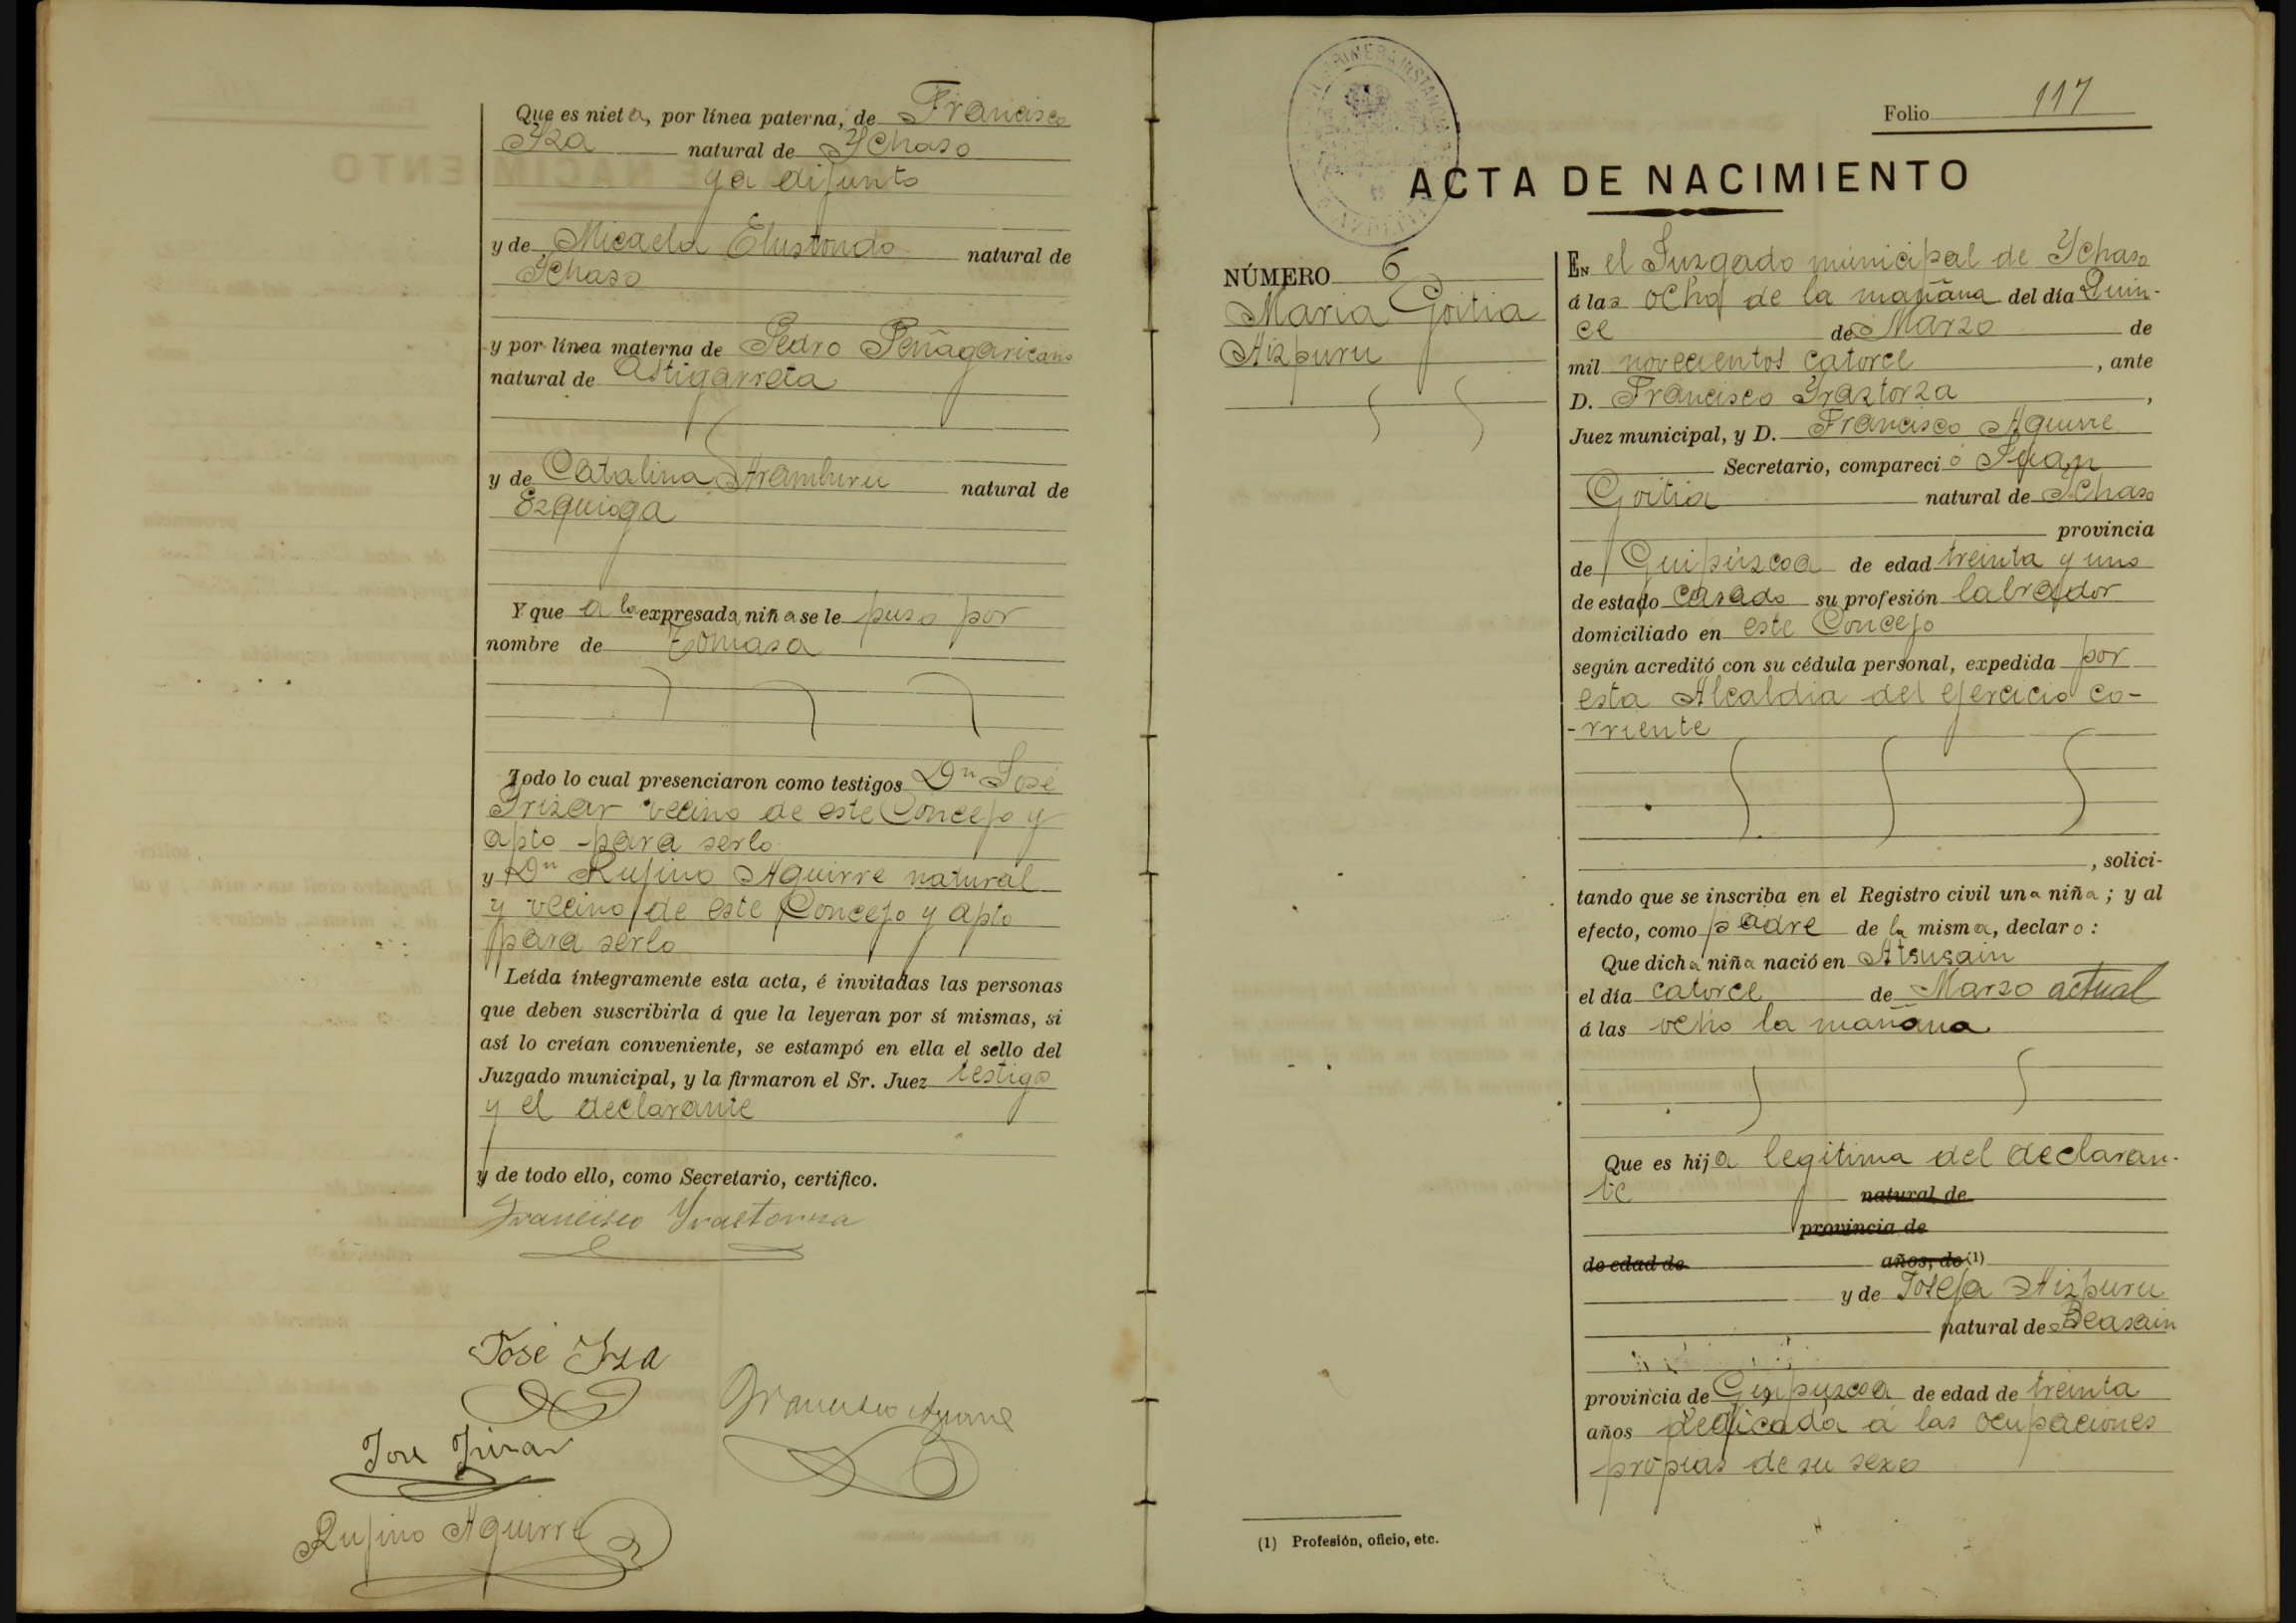 Que es nieta, por línea paterna, de Francisco
Yza natural de Ychaso
ya difunto
y de Micaela Elustondo natural de
Ychaso
y por línea materna de Pedro Peñagaricano
natural de Astigarreta
y de Catalina Aramburu natural de
Ezquioga
Y que a la expresada niña se le puso por
nombre de Tomasa
Todo lo cual presenciaron como testigos Dn José
Irizar vecino de este Concejo y
apto para serlo
y Dn Rufino Aguirre natural
y vecino de este Concejo y apto
para serlo
Leída íntegramente esta acta, é invitadas las personas
que deben suscribirla á que la leyeran por sí mismas, si
así lo creían conveniente, se estampó en ella el sello del
Juzgado municipal, y la firmaron el Sr. Juez testigo
y el declarante
y de todo ello, como Secretario, certifico.
Francisco Yraztorza
José Yza
Francisco Aguirre
José Irizar
Rufino Aguirre
PRIMERA INSTANCIA
Folio 117
ACTA DE NACIMIENTO
NÚMERO 6
Maria Goitia
Aizpuru
EN el Juzgado municipal de Ychaso
á las ocho de la mañana del día Quin-
ce de Marzo de
mil novecientos catorce, ante
D. Francisco Yraztorza,
Juez municipal, y D. Francisco Aguirre
Secretario, compareció Juan
Goitia natural de Ychaso
provincia
de Guipúzcoa de edad treinta y uno
de estado casado su profesión labrador
domiciliado en este Concejo
según acreditó con su cédula personal, expedida por
esta Alcaldia del ejercicio co-
-rriente
, solici-
tando que se inscriba en el Registro civil una niña; y al
efecto, como padre de la misma, declaro:
Que dicha niña nació en Atsusain
el día catorce de Marzo actual
á las ocho la mañana
Que es hija legitima del declaran-
te natural de
provincia de
de edad de años, de (1)
y de Josefa Aizpuru
natural de Beasain
provincia de Guipúzcoa de edad de treinta
años dedicada á las ocupaciones
propias de su sexo
(1) Profesión, oficio, etc.